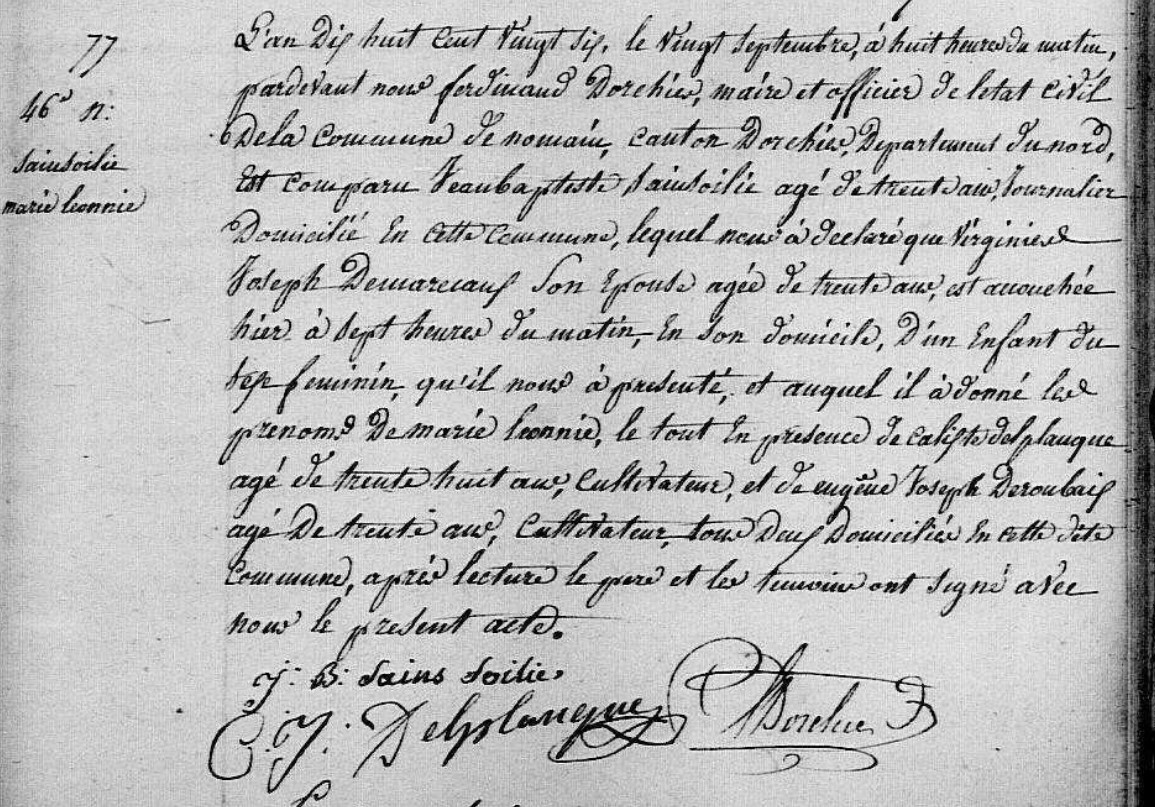 77
46e n:
Sainsoilie
marie leonnie
L'an Dix huit Cent Vingt Six, le Vingt Septembre, à huit heures du matin,
pardevant nous ferdinand Dorchies, maire et officier de letat Civil
De la Commune de nomain, Canton Dorchies, Departement du nord,
Est Comparu Jeanbapteste Sainsoilie agé de trente ans, Journalier
Domicilié En Cette Commune, lequel nous à declaré que Virginie
Joseph Demarecaux Son Epouse agée de trente ans, est accouchée
hier à Sept heures du matin, En Son domicile, D'un Enfant du
Sexe feminin, qu'il nous à presenté, et auquel il à donné les
prenoms De marie leonnie, le tout En presence de Calixte delplanque
agé de trente huit ans, Cultivateur, et de eugêne Joseph Deroubaix
agé De trente ans, Cultivateur, tous Deux Domiciliés En Cette dite
Commune, après lecture le pere et les temoins ont Signé avec
nous le present acte.
J: B: Sains Soilie,
C. J. Delplanque Dorchies